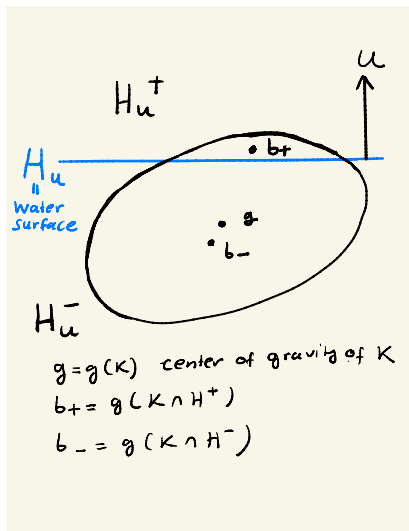 u
Hu⁺
b+
Hu
=
water
surface
g
b-
Hu⁻
g = g(K) center of gravity of K
b+ = g(K ∩ H⁺)
b- = g(K ∩ H⁻)